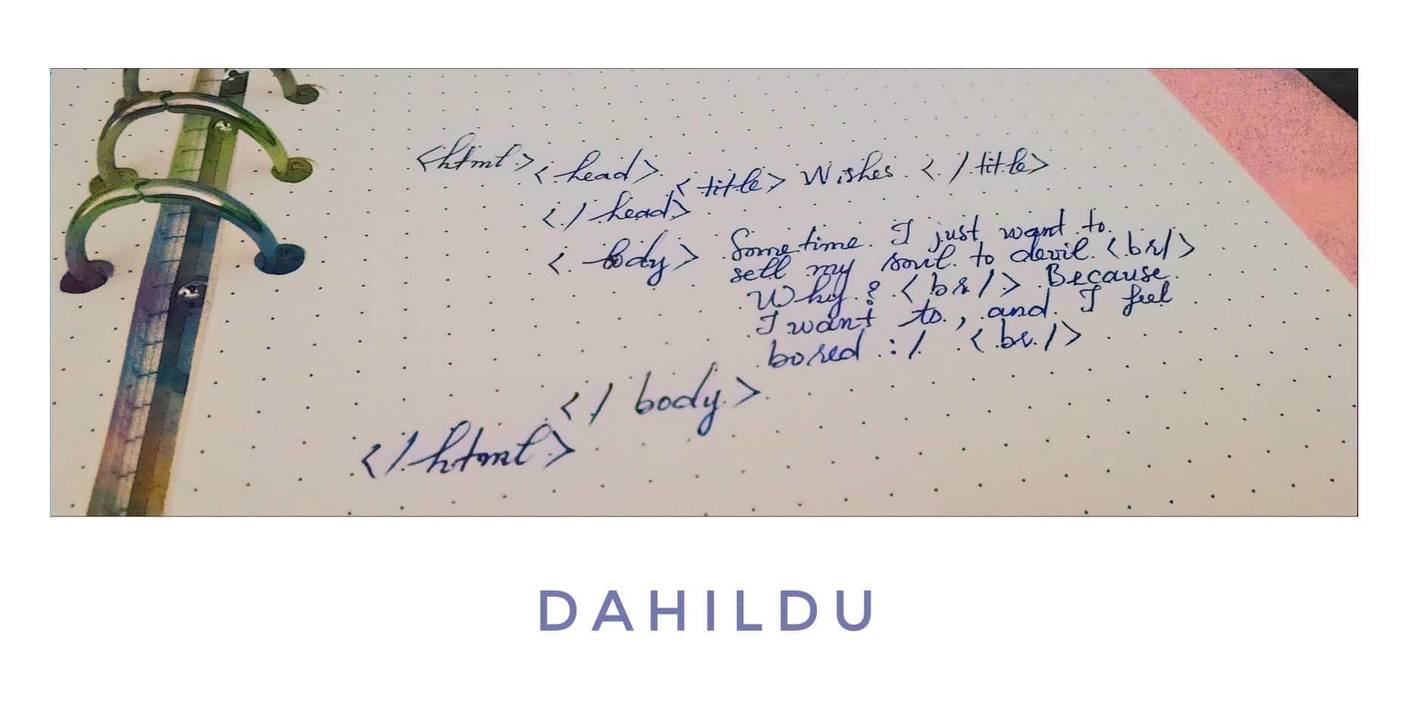 <html> <head> <title> Wishes. </title>
</head>
<body> Sometime. I just want to.
sell my soul to devil. <br/>
Why? <br/> Because
I want to, and I feel
bored :/ <br/>
</body>
</html>
DAHILDU